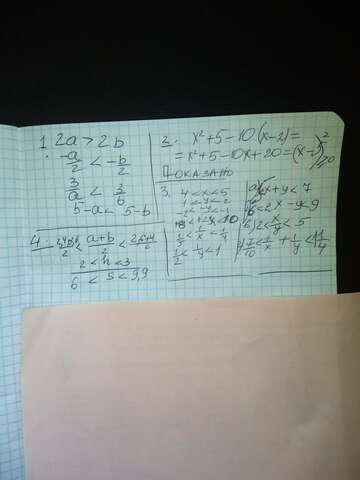 1. 2a > 2b
-a/2 < -b/2
3/a < 3/b
5-a < 5-b
2. x²+5-10(x-2)=
=x²+5-10x+20=(x-5)²≥0
Показано
3. 4<x<5
1<y<2
-2<-y<-1
8<2x<10
1/5<1/x<1/4
1/2<1/y<1
x+y<7
б) 6<2x-y<9
в) 2<x/y<5
г) 7/10<1/x+1/y<1 1/4
4.
a+b/2
2<h<3
6<S<9,9